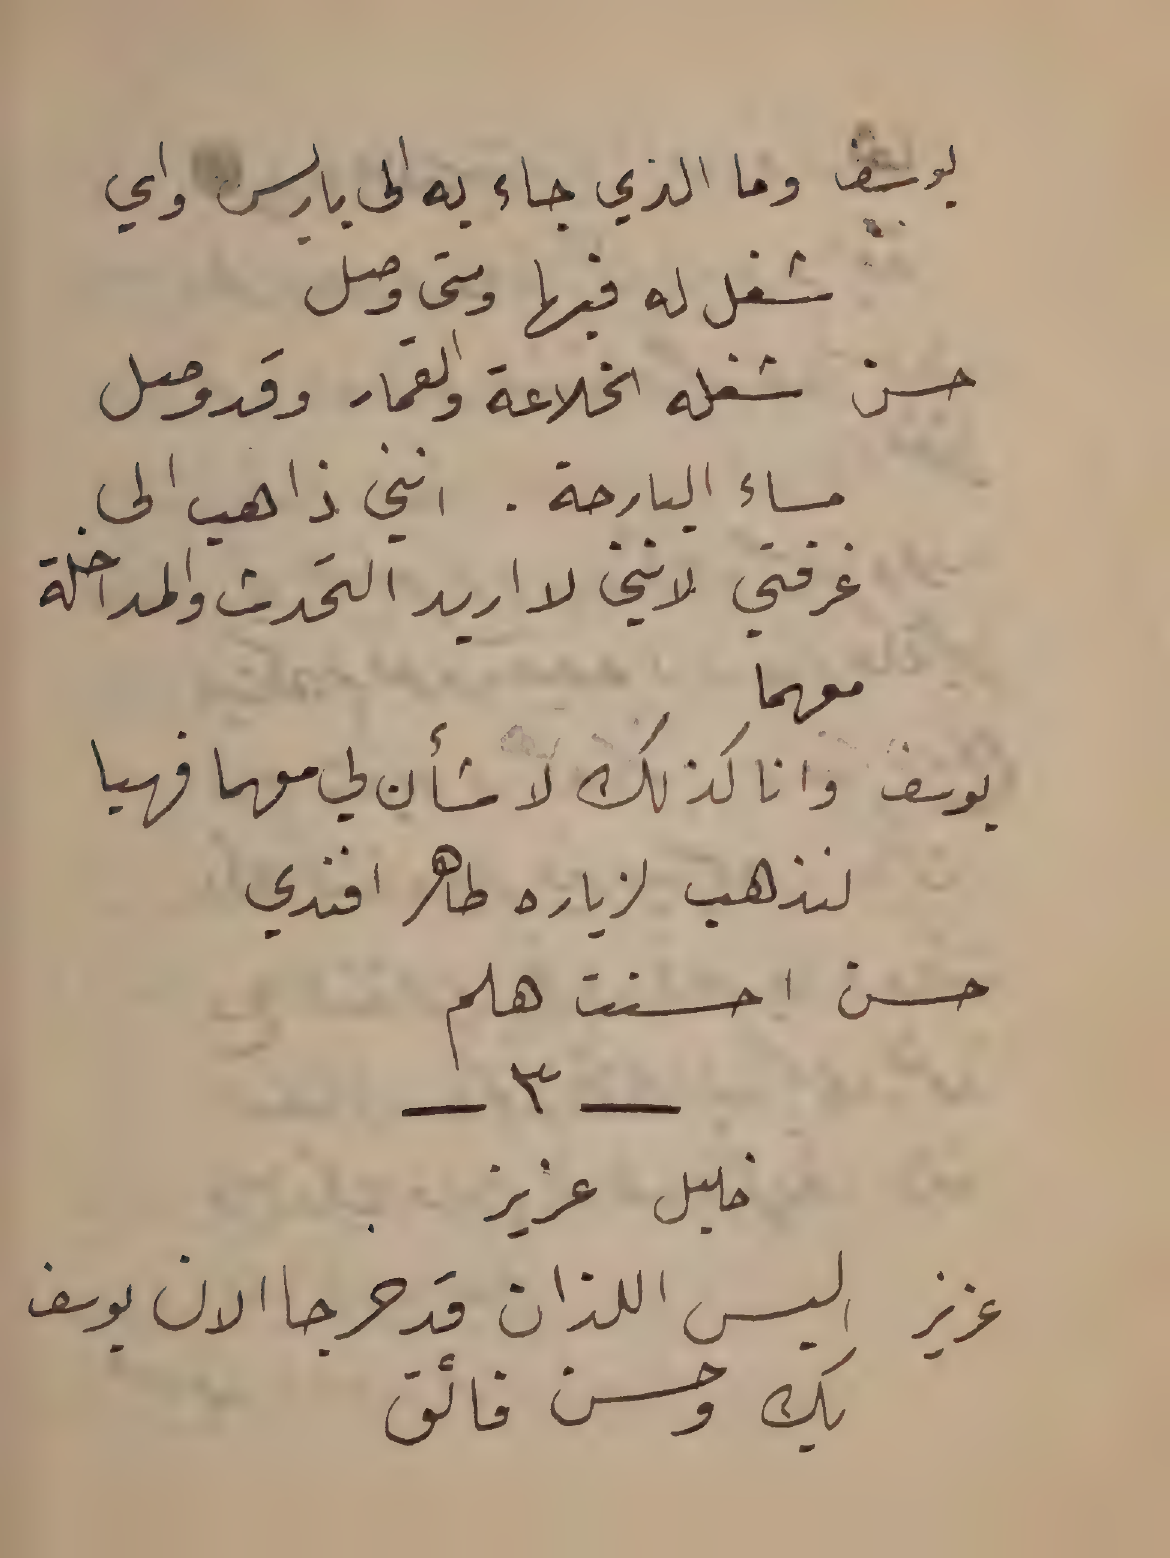 يوسف وما الذي جاء به الى باريس واي
شغل له فيها ومتى وصل
حسن شغله الخلاعة والقمار وقد وصل
مساء البارحة . انني ذاهب الى
غرفتي لانني لا اريد التحدث والمداخلة
معهما
يوسف وانا كذلك لا شأن لي معهما فهيا
لنذهب لزياره طاهر افندي
حسن احسنت هلم
— ٣ —
خليل عزيز
عزيز اليس اللذان قد خرجا الان يوسف
بك وحسن فائق